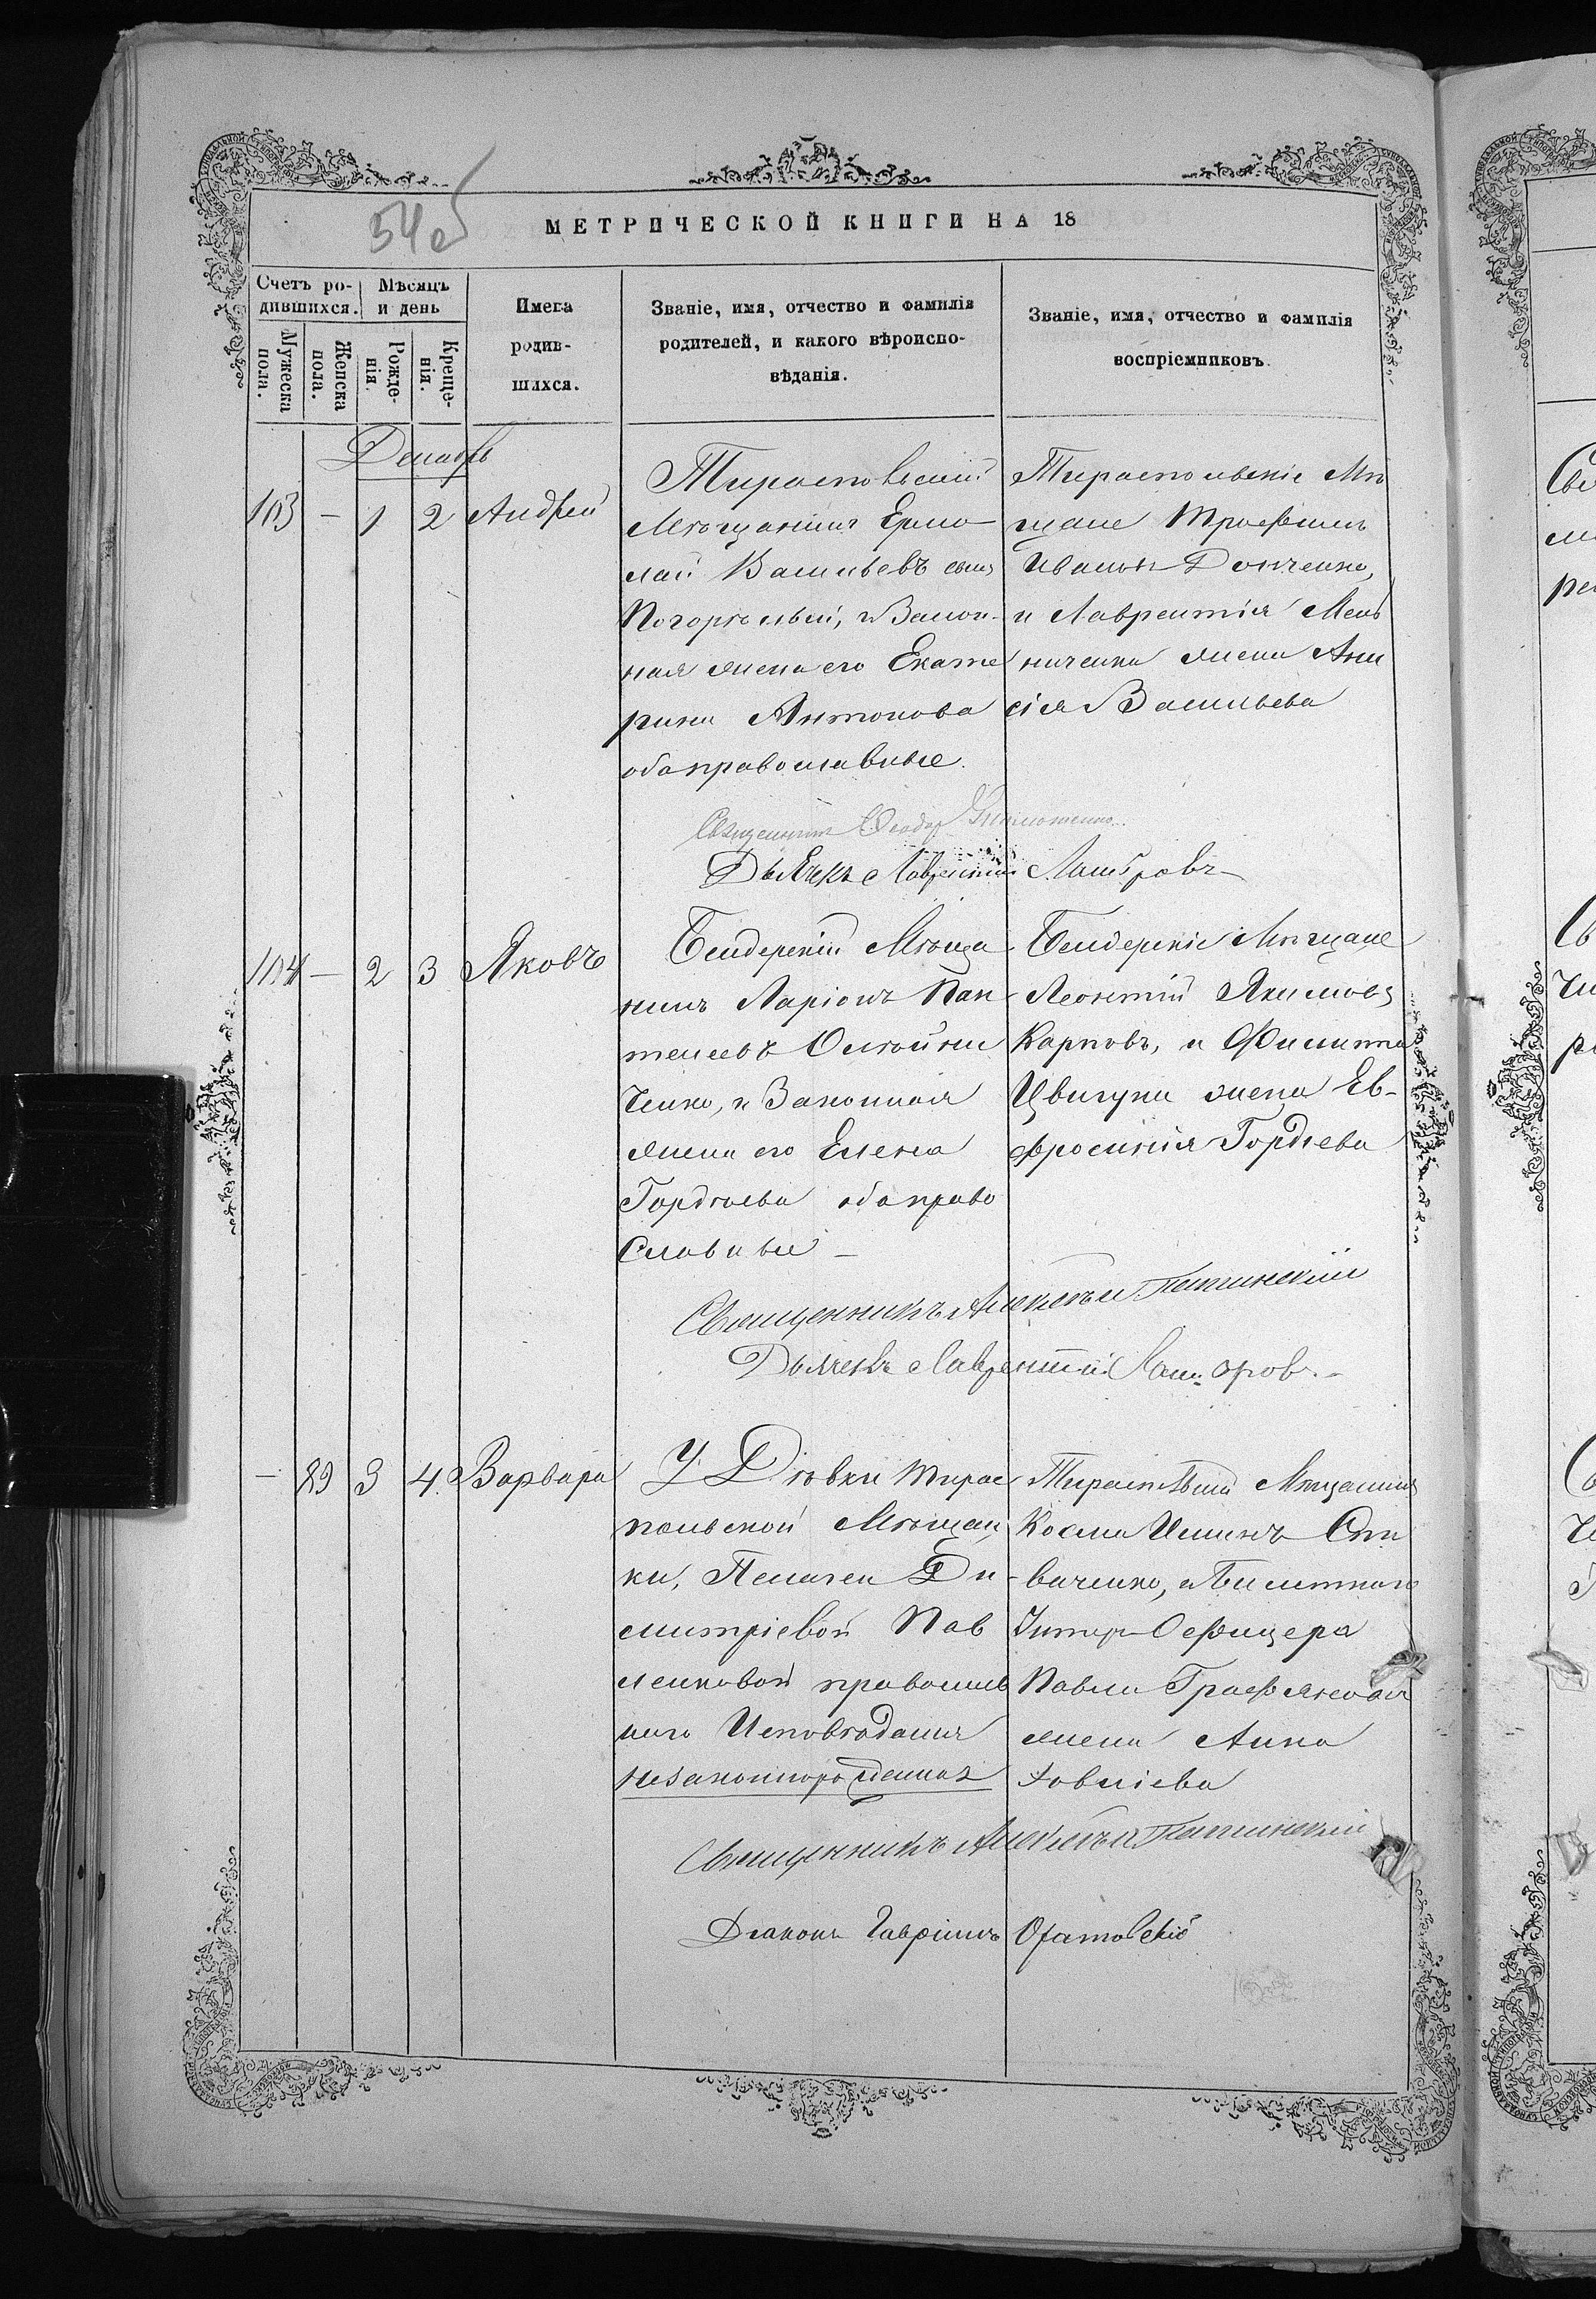 54об
МЕТРИЧЕСКОЙ КНИГИ НА 18
Счетъ ро-
дившихся.
Мѣсяцъ
и день
Имена
родив-
шихся.
Званіе, имя, отчество и фамилія
родителей, и какого вѣроиспо-
вѣданія.
Званіе, имя, отчество и фамилія
воспріемниковъ.
Мужеска
пола.
Женска
пола.
Рожде-
нія.
Креще-
нія.
Декабрь
103 — 1 2 Андрей
Тираспольскій
Мѣщанинъ Ермо-
лай Васильевъ сынъ
Погорѣльій, и Закон-
ная жена его Екате
рина Антонова
оба православные.
Тираспольскіе Мѣ
щане Трофимъ
Ивановъ Донченко,
и Лаврентія Мель
ниченка жена Ани
сія Васильева
Священникъ Ѳеодор
Дьячекъ Лаврентій
104 — 2 3 Яковъ
Бендерскій Мѣща
нинъ Ларіонъ Пан
телеевъ Олѣйни
ченко, и Законная
жена его Елена
Гордѣева оба право
славные —
Бендерскіе Мѣщане
Леонтій Якимовъ
Карповъ, и Филиппа
Цвигуна жена Ев-
фросинія Гордѣева
Священникъ Алексѣй
Дьячекъ Лаврентій
— 89 3 4. Варвара
У Дѣвки Тирас
польской Мѣщан
ки, Пелагеи Ди
митріевой Пав
ленковой православ
наго Исповѣданія
незаконнорожденная
Тираспольскій Мѣщанинъ
Косма Ильинъ Спи
ваченко, и Билетнаго
Унтеръ-Офицера
Павла
жена Анна
Іовліева
Священникъ Алексѣй
Діаконъ Гавріилъ Оратовскій